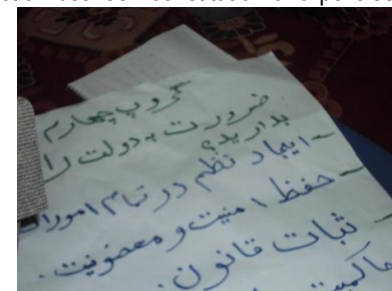 گروپ چهارم
ضرورت به دولت را
بدارید؟
- ایجاد نظم در تمام امورات
- حفظ امنیت و معصونیت.
- ثبات قانون.
حاکمیت